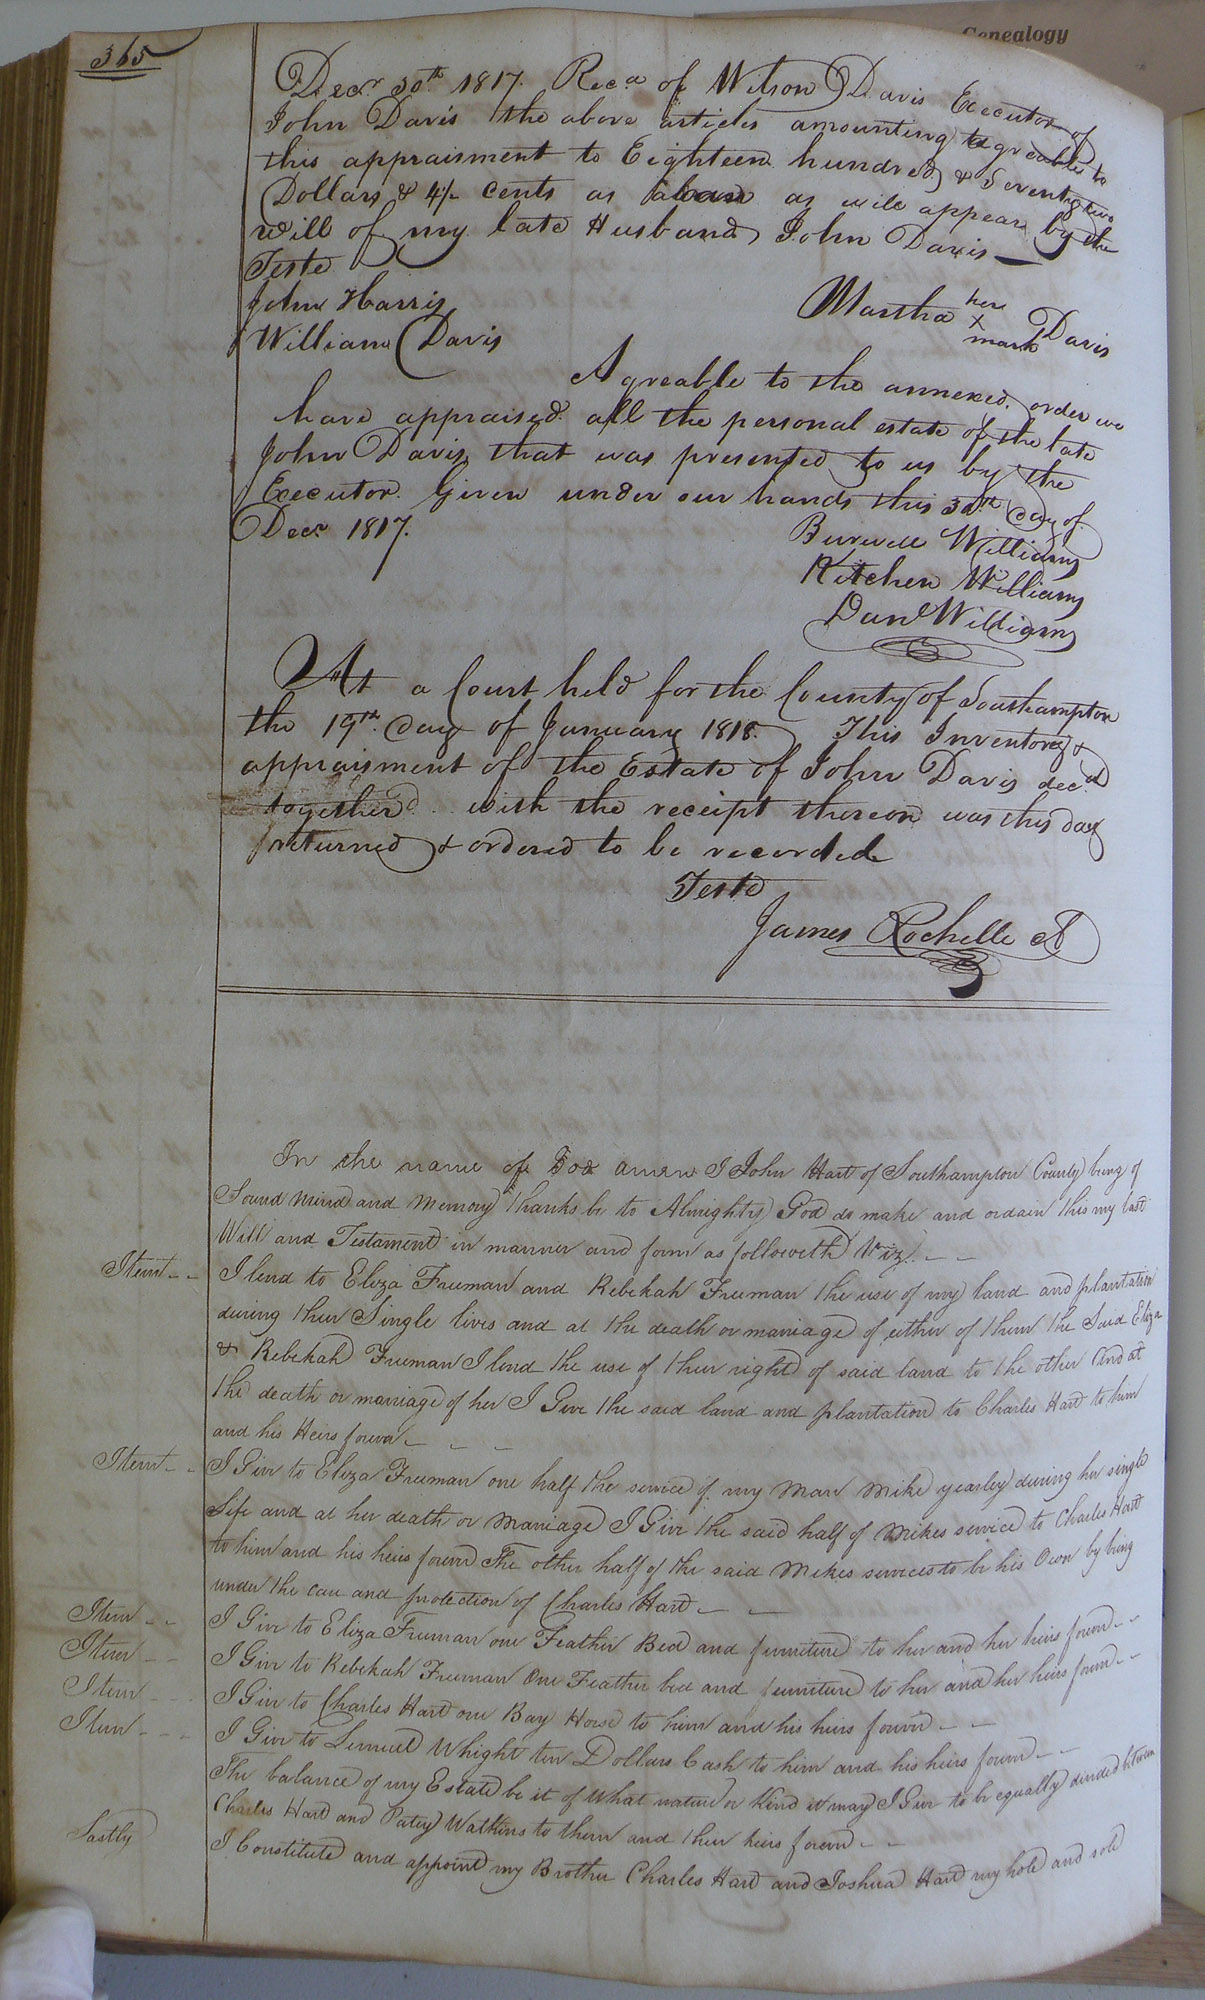 Genealogy
365
Decr. 30th 1817. Recd of Wilson Davis Executor of
John Davis the above articles amounting agreable to
this appraisment to Eighteen hundred & Seventy two
Dollars & 41/- cents as a loan as will appear by the
will of my late Husband John Davis
Teste
John Harris
William Davis
Martha her X mark Davis
Agreable to the annexed order we
have appraised all the personal estate of the late
John Davis that was presented to us by the
Executor. Given under our hands this 30th day of
Decr 1817.
Burwell Williams
Kitchen Williams
Danl Williams
At a Court held for the County of Southampton
the 19th day of January 1818. This Inventory &
appraisment of the Estate of John Davis decd
together with the receipt thereon was this day
returned & ordered to be recorded
Teste
James Rochelle
In the name of God amen I John Hart of Southampton County being of
Sound mind and memory thanks be to Almighty God do make and ordain this my last
Will and Testament in manner and form as followeth Viz. - -
Item - - I lend to Eliza Freeman and Rebekah Freeman the use of my land and plantation
during their Single lives and at the death or mariage of either of them the Said Eliza
& Rebekah Freeman I lend the use of their right of said land to the other And at
the death or mariage of her I Give the said land and plantation to Charles Hart to him
and his Heirs forever - - -
Item - - I Give to Eliza Freeman one half the service of my Man Mike yearley during her single
Life and at her death or Mariage I Give the said half of Mikes service to Charles Hart
to him and his heirs forever The other half of the said Mikes services to be his Own by being
under the care and protection of Charles Hart - -
Item - - I Give to Eliza Freeman one Feather Bed and furniture to her and her heirs forever - -
Item - - I Give to Rebekah Freeman One Feather bed and furniture to her and her heirs forever - -
Item - - - I Give to Charles Hart one Bay Horse to him and his heirs forever - -
Item - - - - I Give to Lemuel Whight ten Dollars Cash to him and his heirs forever - -
The balance of my Estate be it of What nature or Kind it may I Give to be equally divided between
Charles Hart and Patey Watkins to them and their heirs forever - -
Lastly I Constitute and appoint my Brother Charles Hart and Joshua Hart my hole and sole